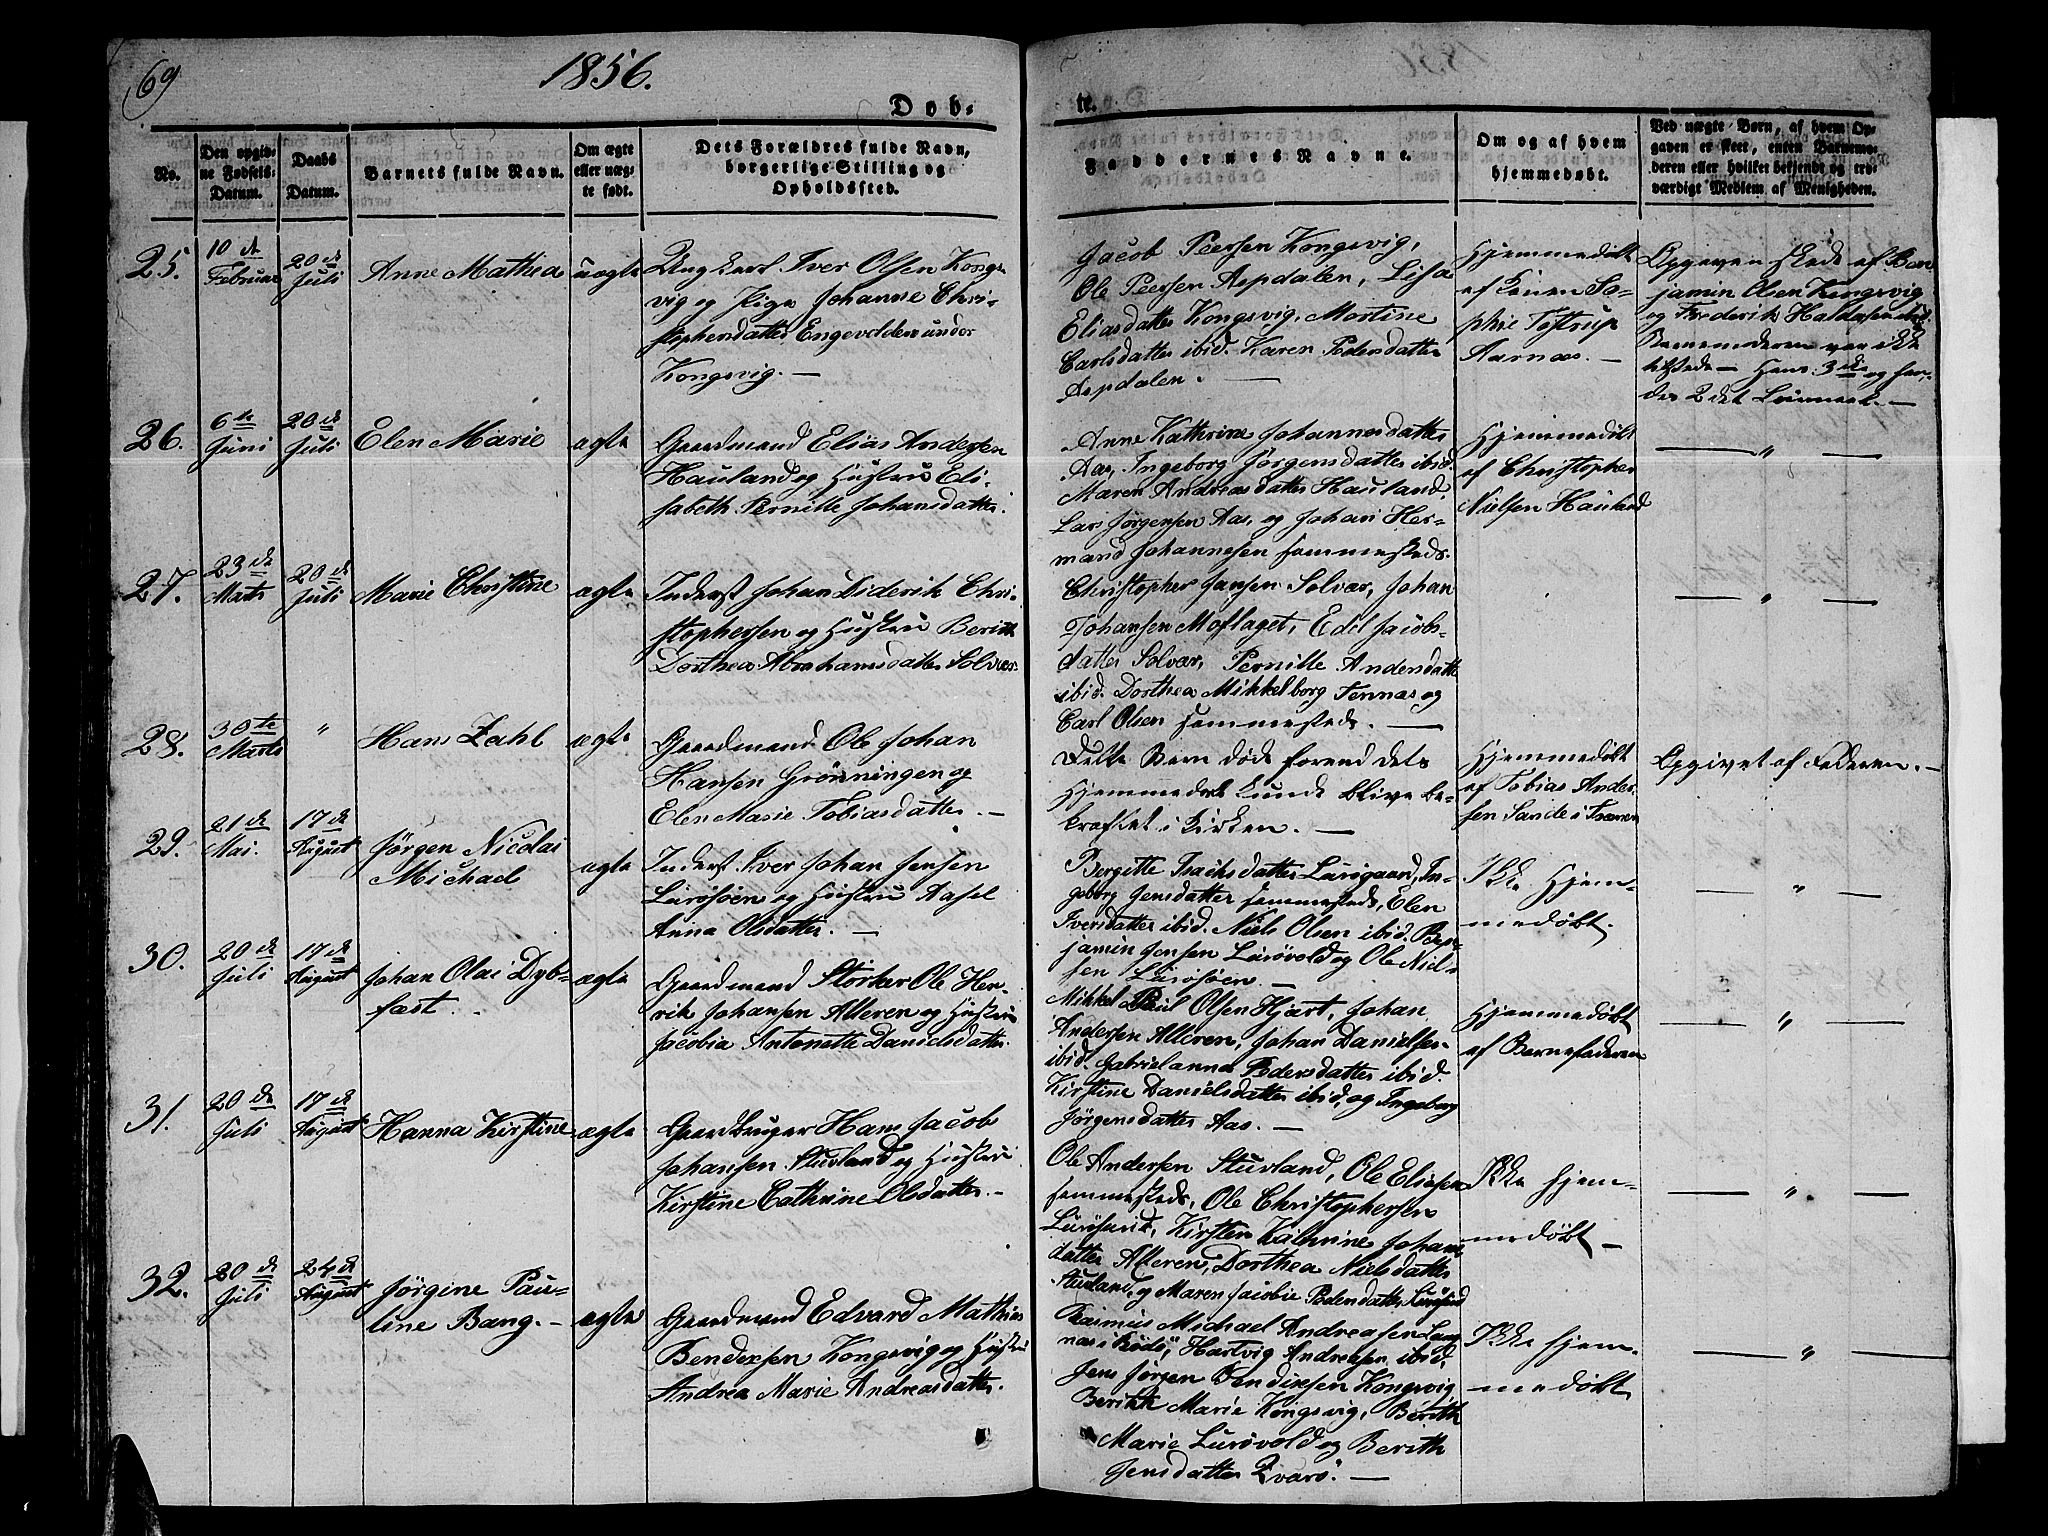 69
1856.
Dob-
te.
No.
Den opgiv-
ne Fødsels-
Datum.
Daabs
Datum.
Barnets fulde Navn.
Om ægte
eller uæg-
te født.
Dets Forældres fulde Navn,
borgerlige Stilling og
Opholdssted.
Faddernes Navne.
Om og af hvem
hjemmedøbt.
Ved uægte Børn, af hvem Op-
gaven er skeet, enten Barnemo-
deren eller hvilket bekjendt og tro-
værdigt Medlem af Menigheden.
25.
10 de
Februar
20 de
Juli
Anne Mathea
uægte
Ungkarl Iver Olsen Kongs-
vig og Pige Johanne Chri-
stophersdatter Engevolden under
Kongsvig. —
Jacob Peersen Kongsvig,
Ole Peersen Aspdalen, Lisa
Eliasdatter Kongsvig, Martine
Carlsdatter ibid. Karen Pedersdatter
Aspdalen. —
Hjemmedøbt
af So-
phie Toftrup
Aarnæs. —
Opgaven skede af Ben-
jamin Olsen Kongsvig
og Frederik
Barnemoderen var ikke
tilstede — Hans 3die og hen-
des 2det Leiermaal. —
26.
6te
Juni
20 de
Juli
Elen Marie
ægte
Gaardmand Elias Andersen
Hauland og Hustru Eli-
sabeth Pernille Johansdatter.
Anne Kathrine Johannesdatter
Aas, Ingeborg Jørgensdatter ibid.
Maren Andreasdatter Hauland,
Lars Jørgensen Aas, og Johan Her-
mand Johannesen sammesteds.
Hjemmedøbt
af Christopher
Nielsen Hauland
— " —
27.
23 de
Marts
20 de
Juli
Marie Christine
ægte
Inderst Johan Diderik Chri-
stophersen og Hustru Berith
Dorthea Abrahamsdatter Solvær.
Christopher Jansen Solvær, Johan
Johansen Moflaget, Edel Jacobs-
datter Solvær, Pernille Andersdatter
ibid. Dorthea Mikkelborg Tennæs og
Carl Olsen sammesteds. —
— " —
28.
30te
Marts
"
Hans Zahl
ægte
Gaardmand Ole Johan
Hansen Grönningen og
Elen Marie Tobiasdatter. —
Dette Barn døde forend dets
Hjemmedaab kunde blive be-
kræftet i Kirken. —
Hjemmedøbt
af Tobias Ander-
sen Sande i Trænen
Opgivet af Faderen. —
29.
21 de
Mai.
17 de
August
Jørgen Nicolai
Michael
ægte
Inderst Iver Johan Jensen
Lurösöen og Hustru Aasel
Anna Olsdatter. —
Bergitte Isachsdatter Lurögaard, In-
geborg Jensdatter sammesteds, Elen
Iversdatter ibid. Niels Olsen ibid. Ben-
jamin Jensen Lurövold og Ole Niel-
sen Lurösöen. —
Ikke hjem-
medøbt.
— " —
30.
20 de
Juli
17 de
August
Johan Olai Dyb-
fæst.
ægte
Gaardmand Størker Ole Hen-
rik Johansen Alteren og Hustru
Jacobia Antonette Danielsdatter.
Mikkel Paul Olsen Hjart, Johan
Andersen Alteren, Johan Danielsen
ibid. Gabrielanna Pedersdatter ibid.
Kirstine Danielsdatter ibid, og Ingeborg
Jörgensdatter Aas. —
Hjemmedøbt
af Barnefaderen
— " —
31.
20 de
Juli
17 de
August
Hanna Kirstine
ægte
Gaardbruger Hans Jacob
Johansen Stuvland og Hustru
Kirstine Cathrine Olsdatter. —
Ole Andersen Stuvland, Ole Eliasen
sammesteds, Ole Christophersen
Kirsten Kathrine Johans-
datter Alteren, Dorthea Nielsdatter
Stuvland, og Maren Jacobie Pedersdatter
Ikke hjem-
medøbt —
— " —
32.
20 de
Juli
24 de
August
Jörgine Pau-
line Bang. —
ægte
Gaardmand Edvard Mathias
Bendixsen Kongsvig og Hustru
Andrea Marie Andreasdatter.
Rasmus Michael Andreasen Lang-
næs i Rödö, Hartvig Andreasen ibid.
Jens Jörgen Bendixsen Kongsvig
Berith Marie Kongsvig, Berith
Marie Lurövold og Berith
Jensdatter Qvarö. —
Ikke hjem-
medøbt
— " —